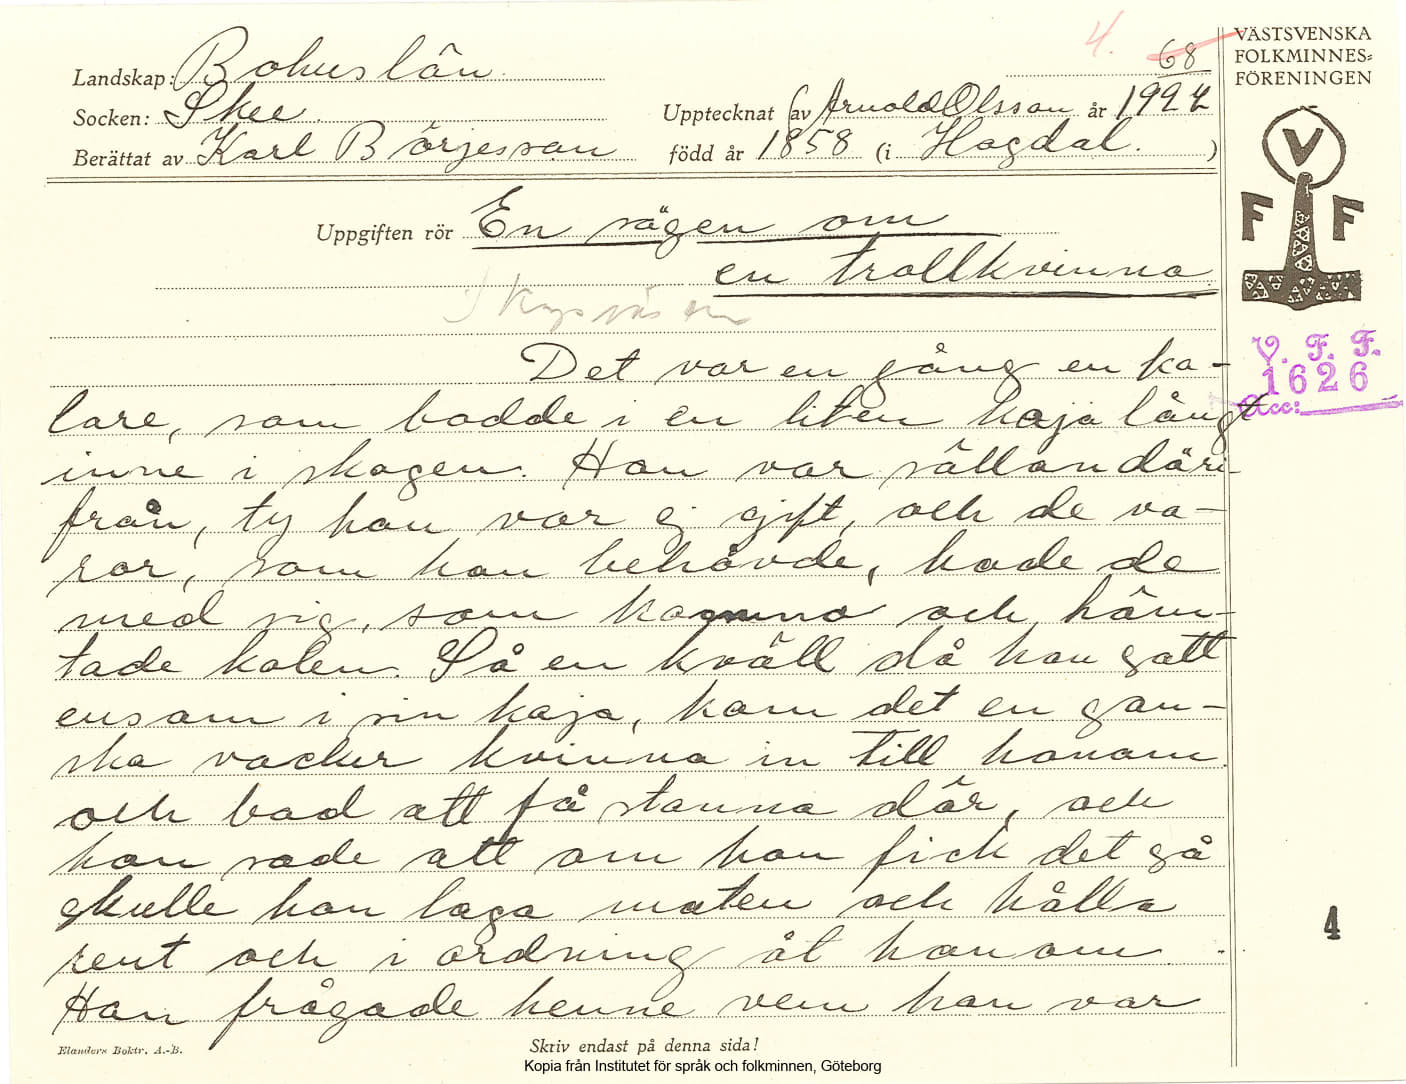 4.
68
VÄSTSVENSKA
FOLKMINNES=
FÖRENINGEN
Landskap: Bohuslän
Socken: Skee
Upptecknat av Arnold Olsson år 1924
Berättat av Karl Börjesson född år 1858 (i Hogdal.)
V
F F
Uppgiften rör En sägen om
en trollkvinna
V. F. F.
1626
Acc:
Det var en gång en ko-
lare, som bodde i en liten koja långt
inne i skogen. Han var sällan däri-
från, ty han var ej gift, och de va-
ror, som han behövde, hade de
med sig, som kommo och häm-
tade kolen. Så en kväll då han satt
ensam i sin koja, kom det en gan-
ska vacker kvinna in till honom
och bad att få stanna där, och
hon sade att om hon fick det så
skulle hon laga maten och hålla
rent och i ordning åt honom.
Han frågade henne vem hon var
4
Elanders Boktr. A.-B.
Skriv endast på denna sida!
Kopia från Institutet för språk och folkminnen, Göteborg